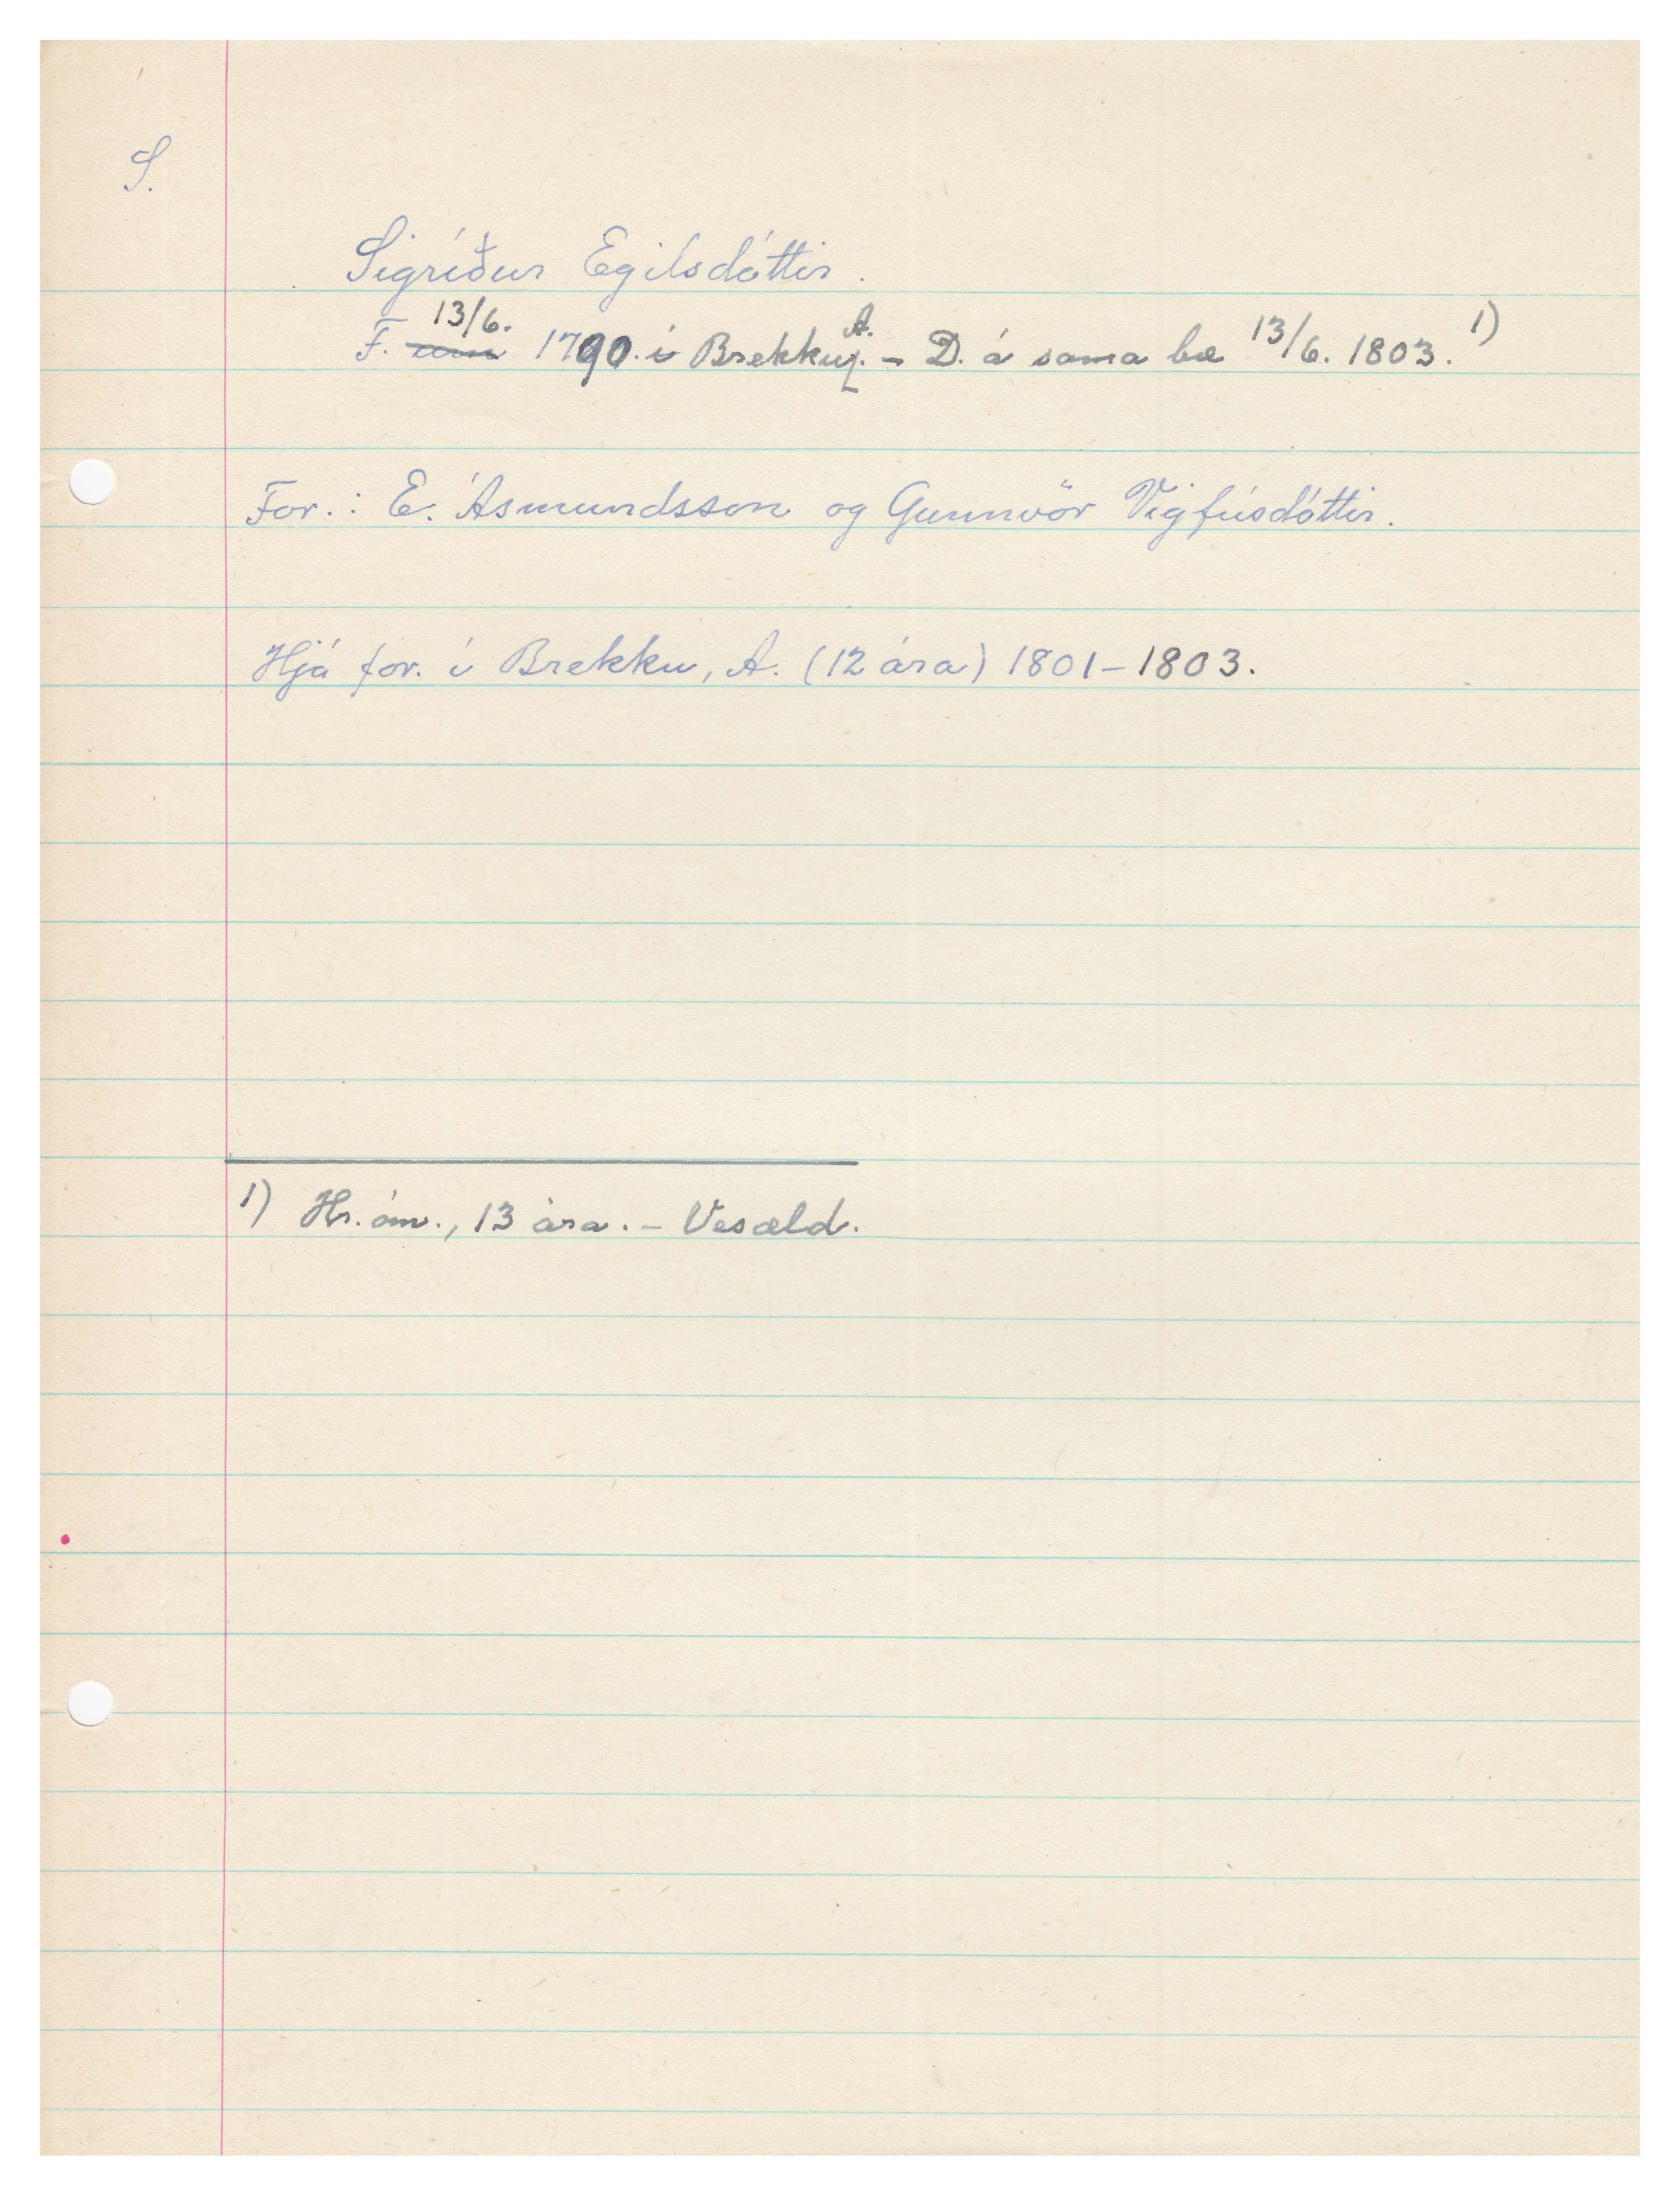 S.
Sigríður Egilsdóttir.
F. 13/6. 1790. í Brekku, A. – D. á sama bæ 13/6. 1803. 1)
For.: E. Ásmundsson og Gunnvör Vigfúsdóttir.
Hjá for. í Brekku, A. (12 ára) 1801–1803.
1) Hr. óm., 13 ára. – Vesæld.